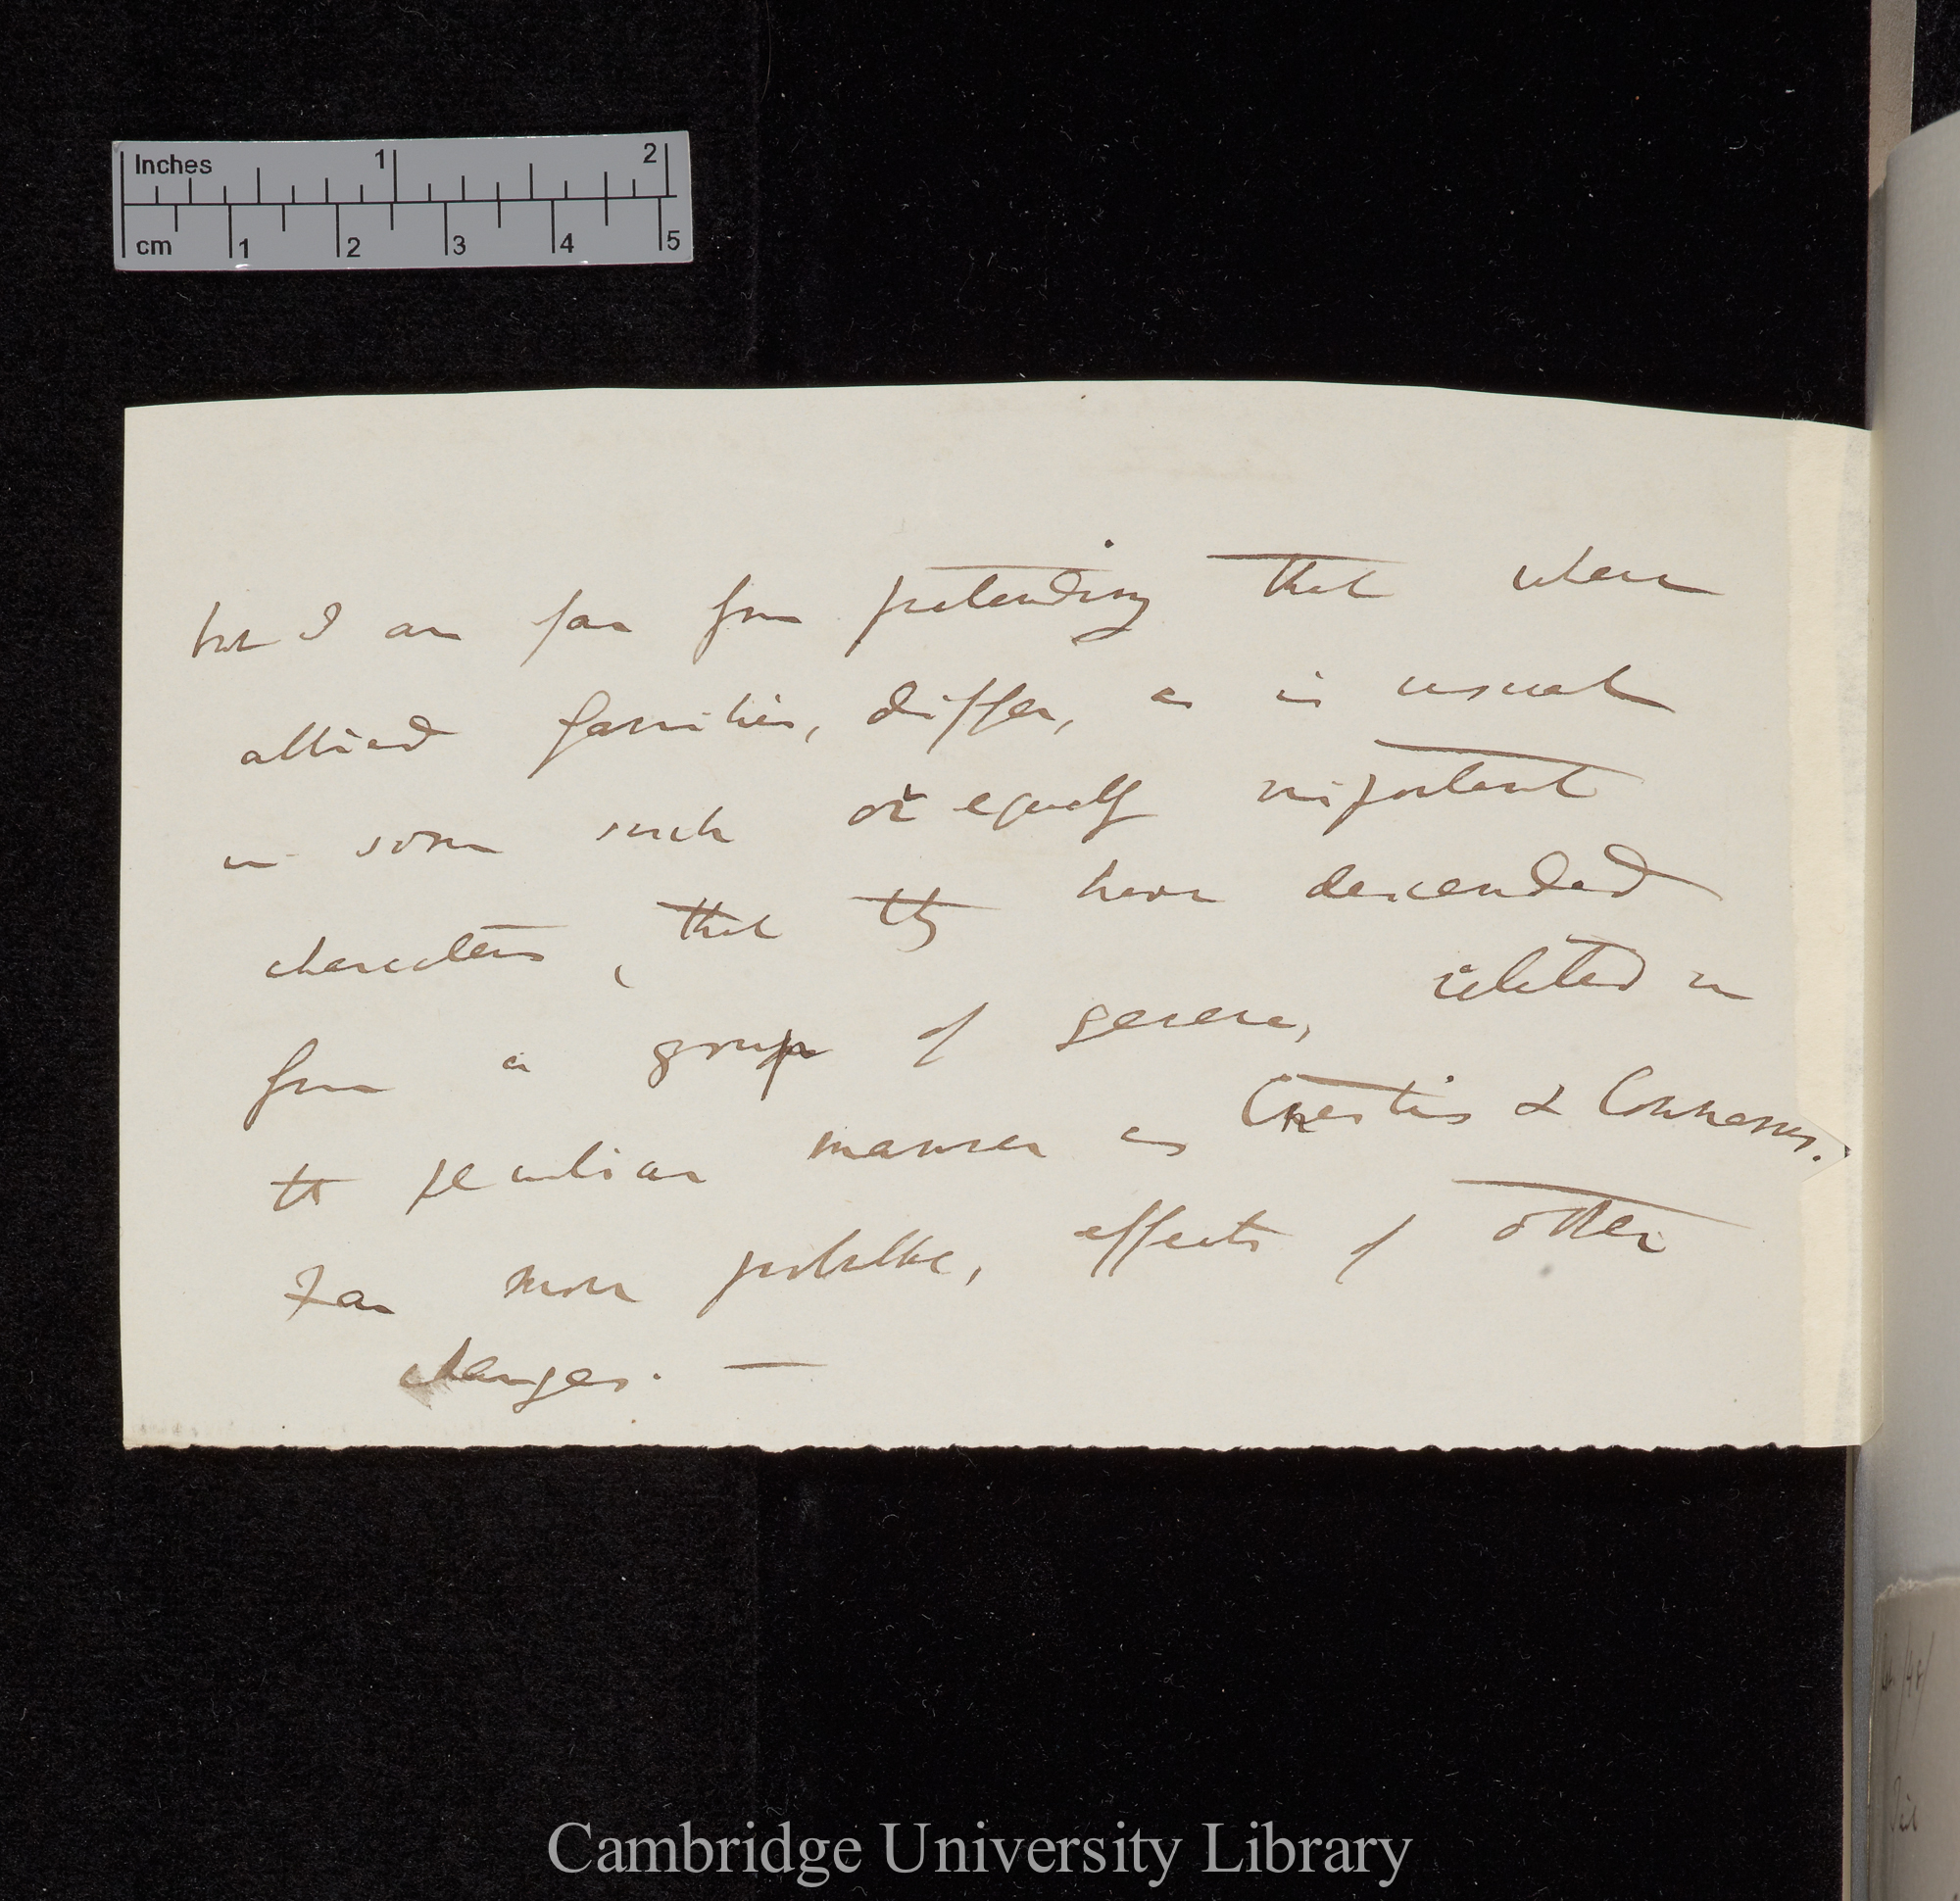 Inches 1 2
cm 1 2 3 4 5
but I am far from pretending that when
allied families, differ, as is usual
in some such or equally important
characters, that they have descended
from a group of genera, related in
the peculiar manner as Cnestis & Connarus.
Far more probable, effects of other
changes. —
Cambridge University Library